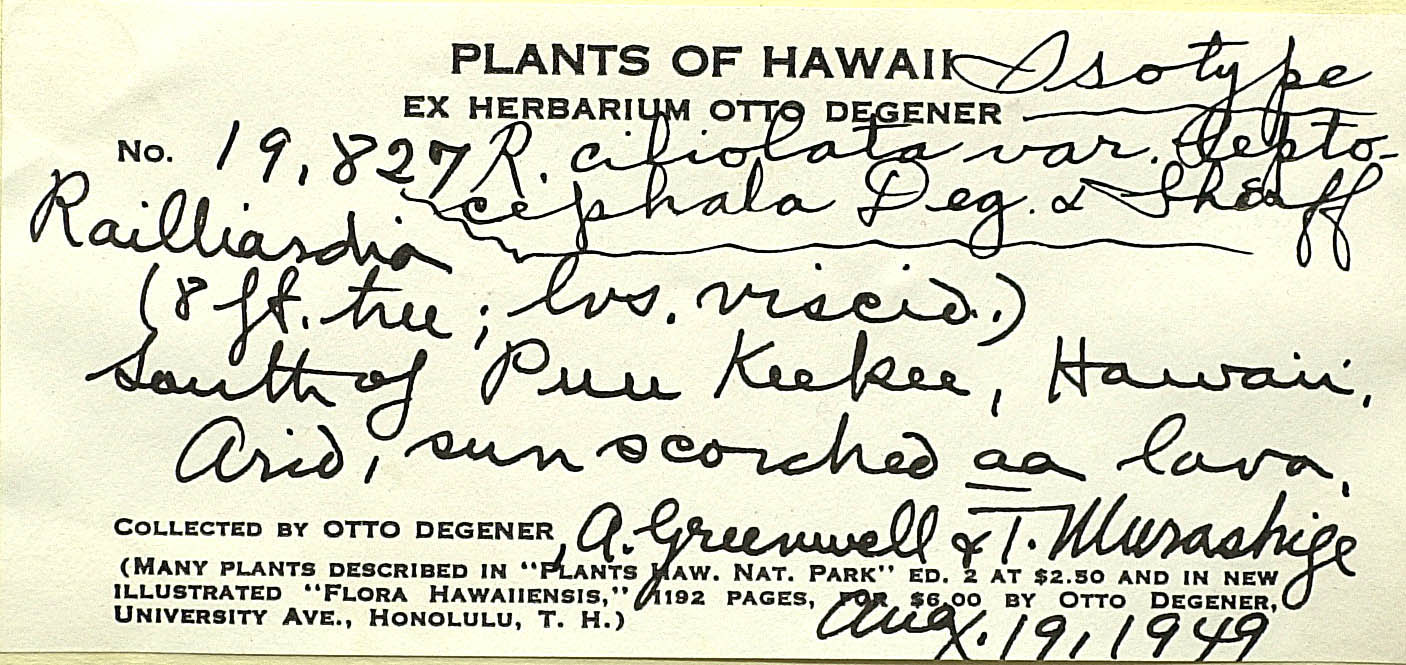 PLANTS OF HAWAII Isotype
EX HERBARIUM OTTO DEGENER
No. 19,827 R. ciliolata var. lepto-
cephala Deg. & Sherff
Railliardia
(8 ft. tree; lvs. viscid.)
South of Puu Keekee, Hawaii.
Arid, sun scorched aa lava.
COLLECTED BY OTTO DEGENER, A. Greenwell & T. Murashige
(MANY PLANTS DESCRIBED IN "PLANTS HAW. NAT. PARK" ED. 2 AT $2.50 AND IN NEW
ILLUSTRATED "FLORA HAWAIIENSIS," 1192 PAGES, FOR $6.00 BY OTTO DEGENER,
UNIVERSITY AVE., HONOLULU, T. H.)
Aug. 19, 1949